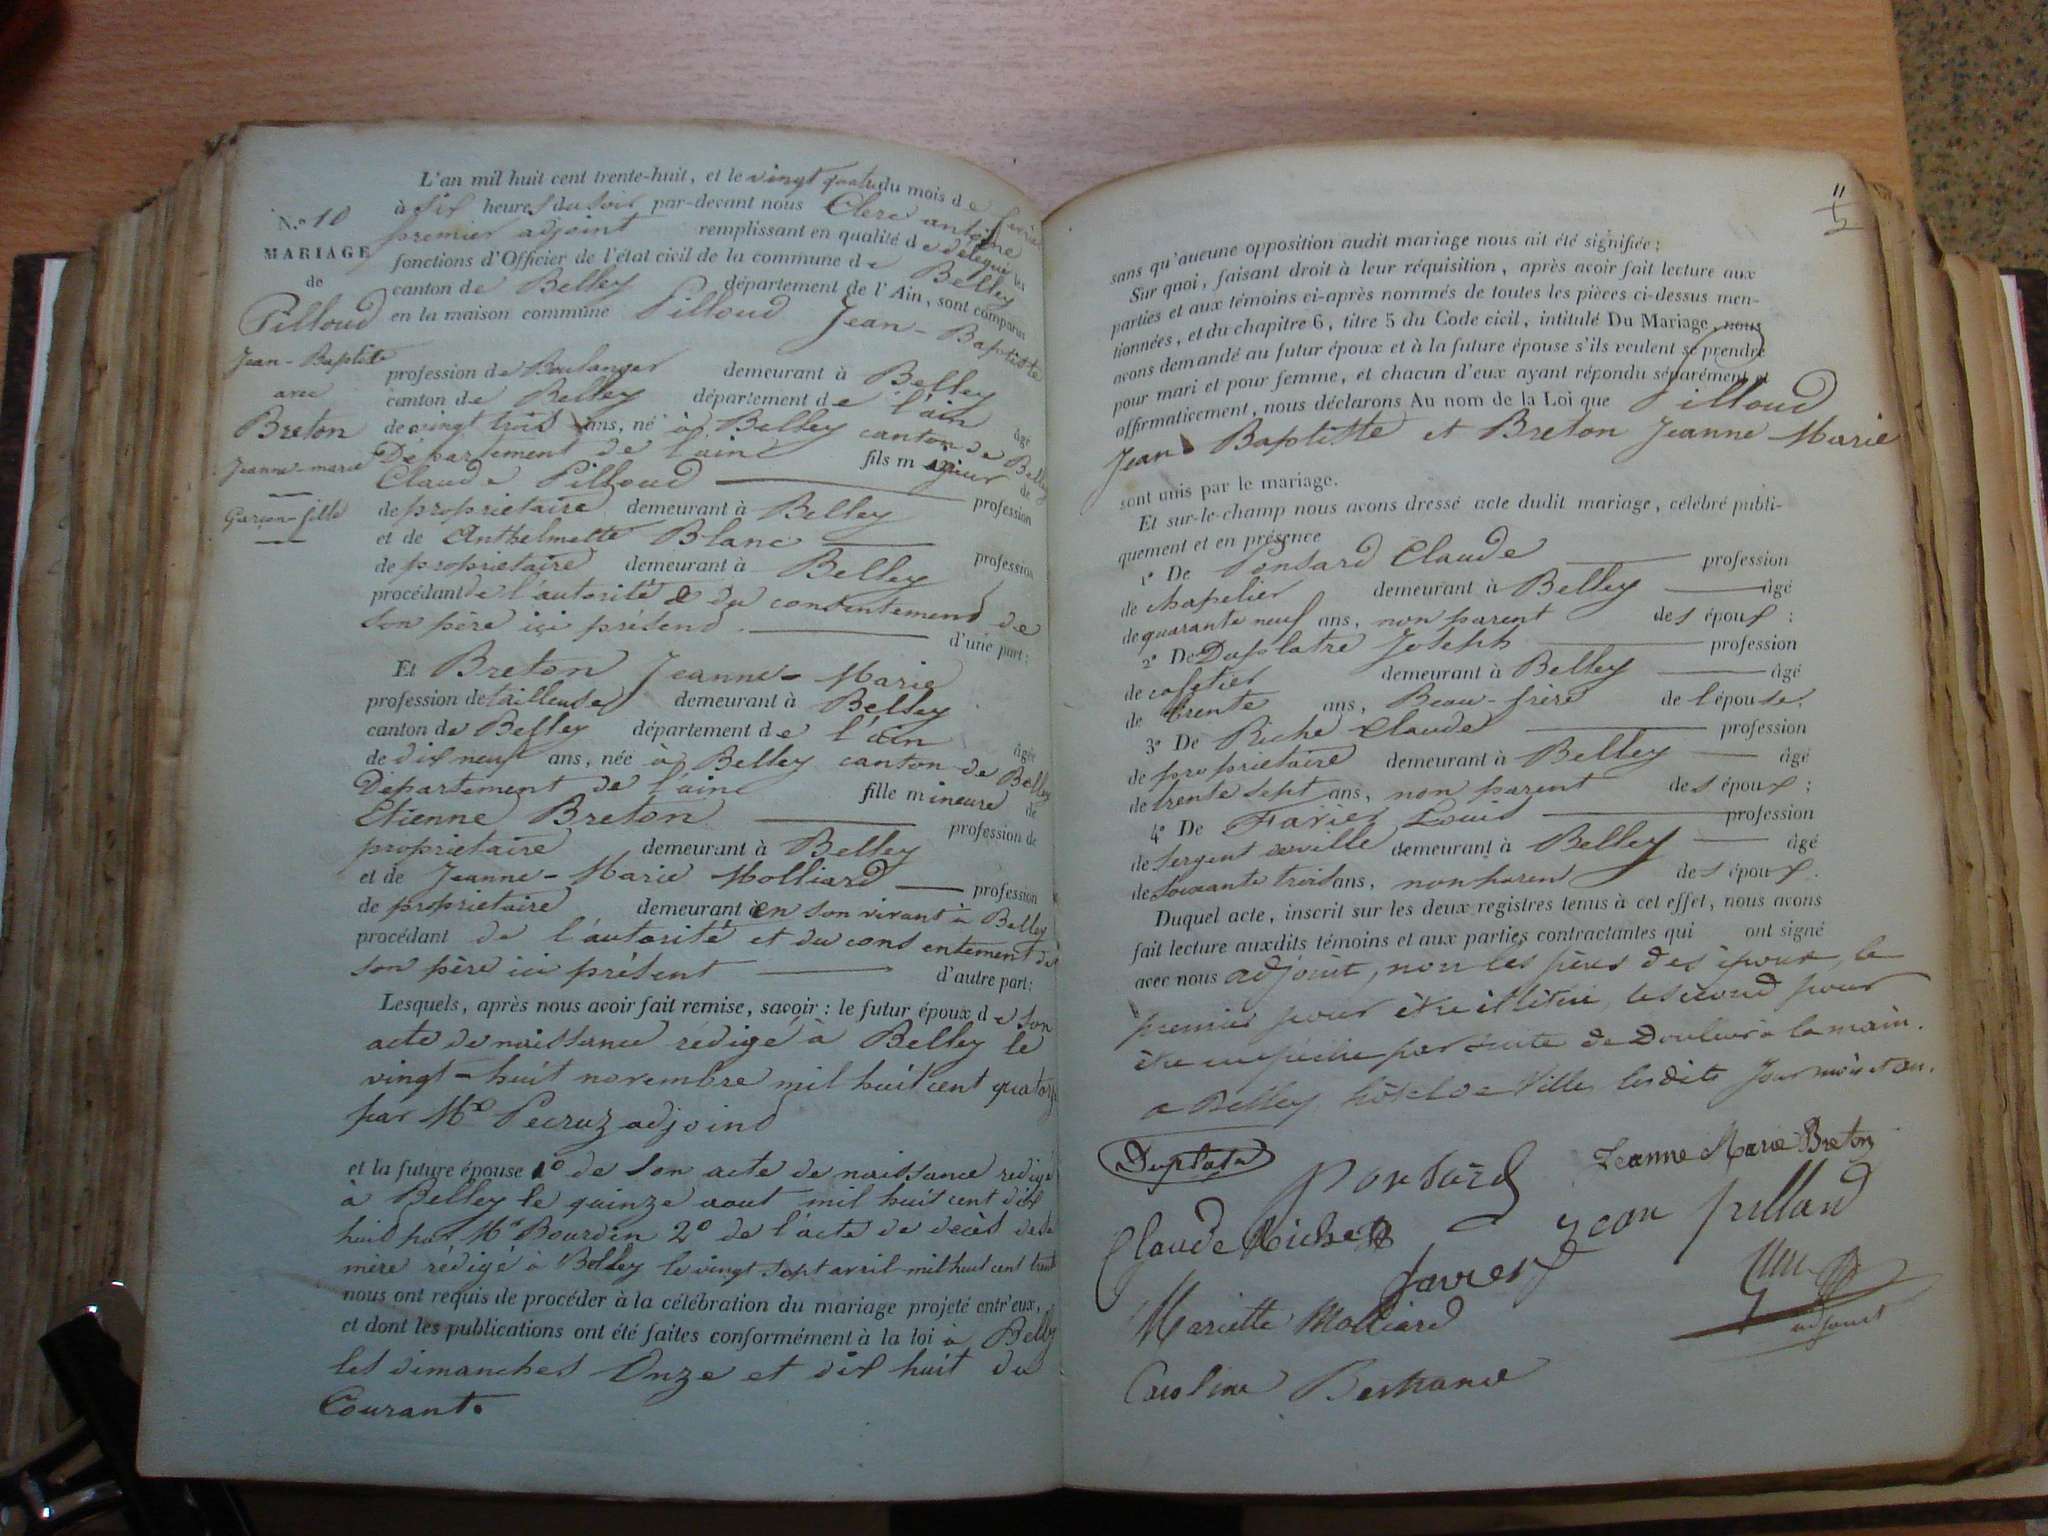 N.o 10
MARIAGE
de
Pilloud
Jean-Baptiste
avec
Breton
Jeanne-marie
Garçon-fille
L'an mil huit cent trente-huit, et le vingt quatre du mois de fevrier
à six heures du soir par-devant nous Clerc antoine
premier adjoint remplissant en qualité de délégué les
fonctions d'Officier de l'état civil de la commune de Belley
canton de Belley département de l'Ain, sont comparus
en la maison commune Pilloud Jean-Baptiste
profession de Boulanger demeurant à Belley
canton de Belley département de l'ain âgé
de vingt trois ans, né à Belley canton de Belley
Département de l'ain fils majeur de
Claude Pilloud profession
de propriétaire demeurant à Belley
et de Anthelmette Blanc profession
de propriétaire demeurant à Belley
procédant de l'autorité & du consentement de
son père ici présent d'une part:
Et Breton Jeanne-Marie
profession de tailleuse demeurant à Belley
canton de Belley département de l'ain âgée
de dix neuf ans, née à Belley canton de Belley
Département de l'ain fille mineure de
Etienne Breton profession de
propriétaire demeurant à Belley
et de Jeanne-Marie Molliard profession
de propriétaire demeurant en son vivant à Belley
procédant de l'autorité et du consentement de
son père ici présent d'autre part:
Lesquels, après nous avoir fait remise, savoir: le futur époux de son
acte de naissance rédigé à Belley le
vingt-huit novembre mil huit cent quatorze
par Mr Pecruz adjoint
et la future épouse 1o de son acte de naissance redigé
à Belley le quinze aout mil huit cent dix
huit par Mr Bourdin 2o de l'acte de decès de sa
mère rédigé à Belley le vingt sept avril mil huit cent trente
nous ont requis de procéder à la célébration du mariage projeté entr'eux,
et dont les publications ont été faites conformément à la loi à Belley
les dimanches Onze et dix huit du
Courant.
11
sans qu'aucune opposition audit mariage nous ait été signifiée;
Sur quoi, faisant droit à leur réquisition, après avoir fait lecture aux
parties et aux témoins ci-après nommés de toutes les pièces ci-dessus men-
tionnées, et du chapitre 6, titre 5 du Code civil, intitulé Du Mariage, nous
avons demandé au futur époux et à la future épouse s'ils veulent se prendre
pour mari et pour femme, et chacun d'eux ayant répondu séparément et
affirmativement, nous déclarons Au nom de la Loi que Pilloud
Jean Baptiste et Breton Jeanne-Marie
sont unis par le mariage.
Et sur-le-champ nous avons dressé acte dudit mariage, célébré publi-
quement et en présence
1o De Ponsard Claude profession
de chapelier demeurant à Belley âgé
de quarante neuf ans, non parent des époux;
2o De Duplatre Joseph profession
de cafetier demeurant à Belley âgé
de trente ans, Beau-frère de l'épouse.
3o De Riche Claude profession
de propriétaire demeurant à Belley âgé
de trente sept ans, non parent des époux;
4o De Favier Louis profession
de sergent de ville demeurant à Belley âgé
de soixante trois ans, non parent des époux.
Duquel acte, inscrit sur les deux registres tenus à cet effet, nous avons
fait lecture auxdits témoins et aux parties contractantes qui ont signé
avec nous adjoint, non les pères des époux, le
premier pour être illitéré, le second pour
être empêché par suite de Douleur à la main.
a Belley, hôtel de Ville, lesdits jour mois et an.
Duplatre Ponsard Jeanne Marie Breton
Claude Riche Jean pilloud
favier Clerc
Mariette Molliard adjoint
Caroline Bertrand